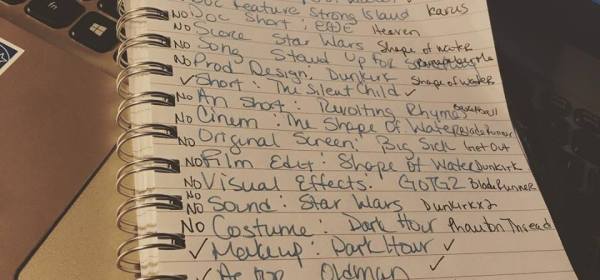 Doc Feature Strong Island Icarus
NO Doc Short: Heaven
NO Score Star Wars Shape of Water
NO Song Stand Up For
NO Prod Design: Dunkirk Shape of Water
✓ Short: The Silent Child ✓
NO An Short: Revolting Rhymes Basketball
NO Cinem: The Shape of Water Blade Runner
NO Original Screen: Big Sick Get Out
NO Film Edit: Shape of Water Dunkirk
NO Visual Effects. GOTG2 Blade Runner
NO NO Sound: Star Wars Dunkirk x2
NO Costume: Dark Hour Phantom Thread
✓ Makeup: Dark Hour ✓
✓ Oldman ✓